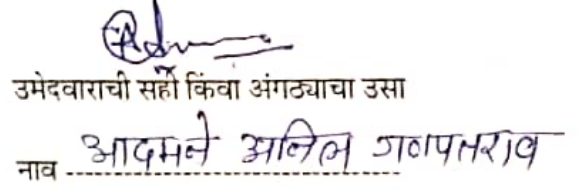 उमेदवाराची सही किंवा अंगठ्याचा उसा
नाव आदमने अनिल गणपतराव